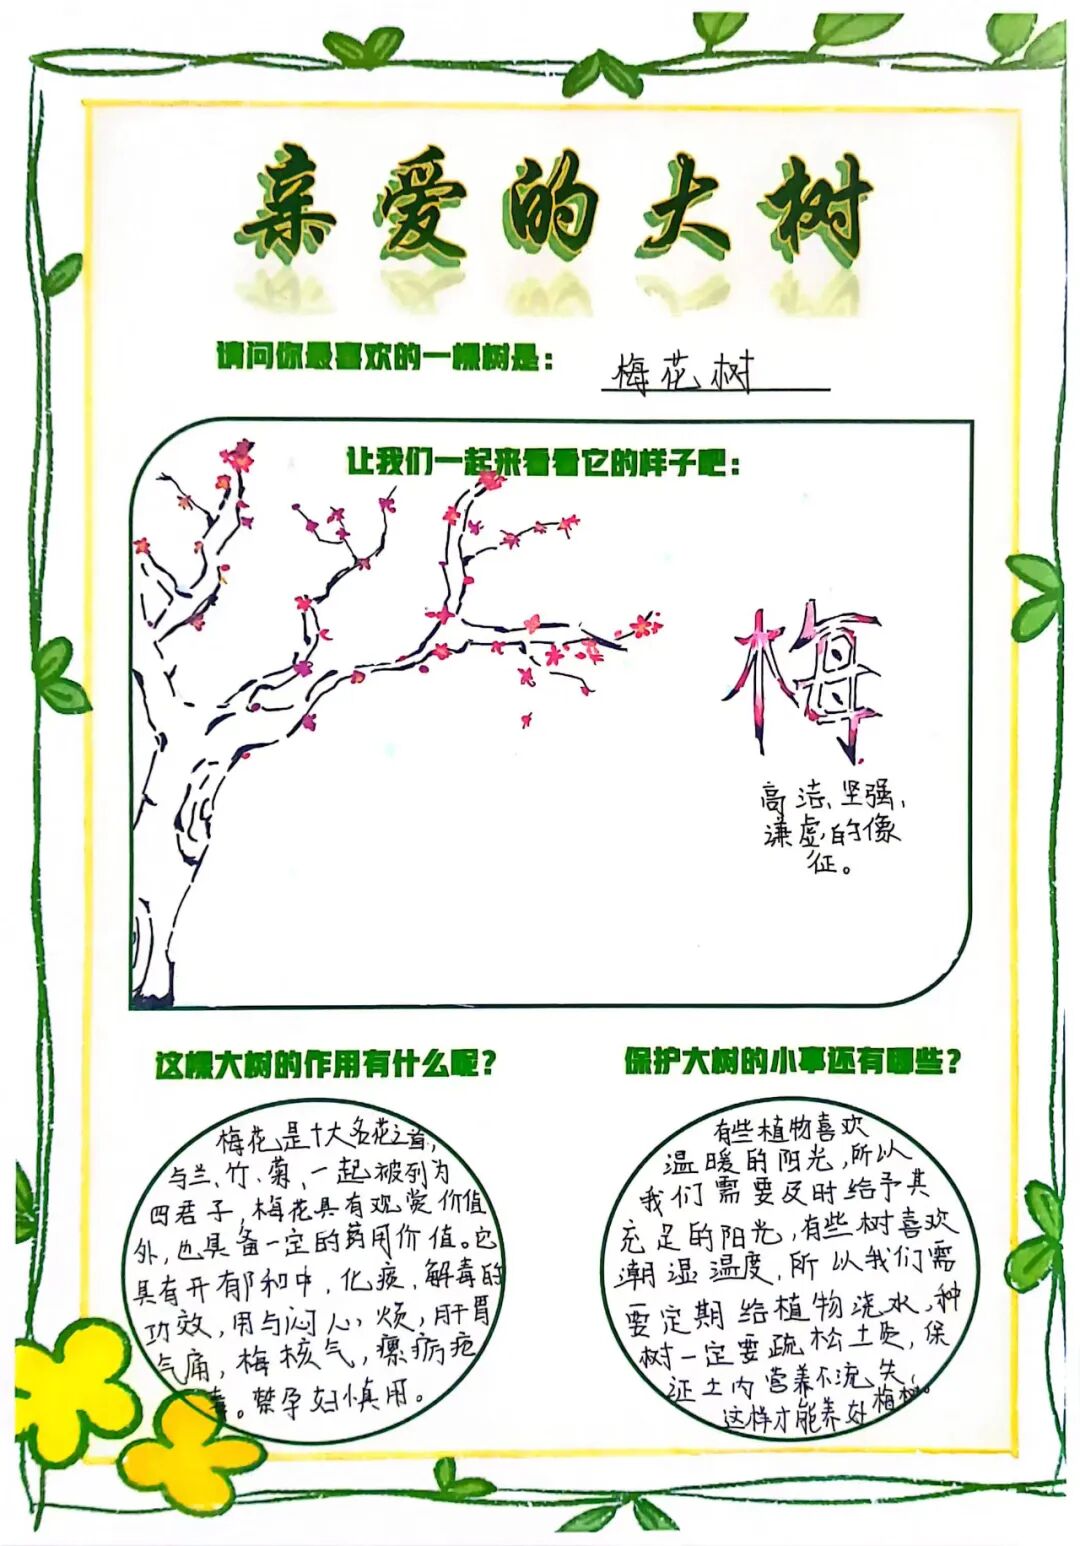 亲爱的大树
请问你最喜欢的一棵树是：
梅花树
让我们一起来看看它的样子吧：
梅
高洁、坚强、
谦虚的像
征。
这棵大树的作用有什么呢？
梅花是十大名花之首，
与兰、竹、菊、一起被列为
四君子，梅花具有观赏价值
外，也具备一定的药用价值。它
具有开郁和中，化痰，解毒的
功效，用与闷心，烦，肝胃
气痛，梅核气，瘰疬疮
毒。禁孕妇慎用。
保护大树的小事还有哪些？
有些植物喜欢
温暖的阳光，所以
我们需要及时给予其
充足的阳光，有些树喜欢
潮湿温度，所以我们需
要定期给植物浇水，种
树一定要疏松土质，保
证土内营养不流失，
这样才能养好梅树。